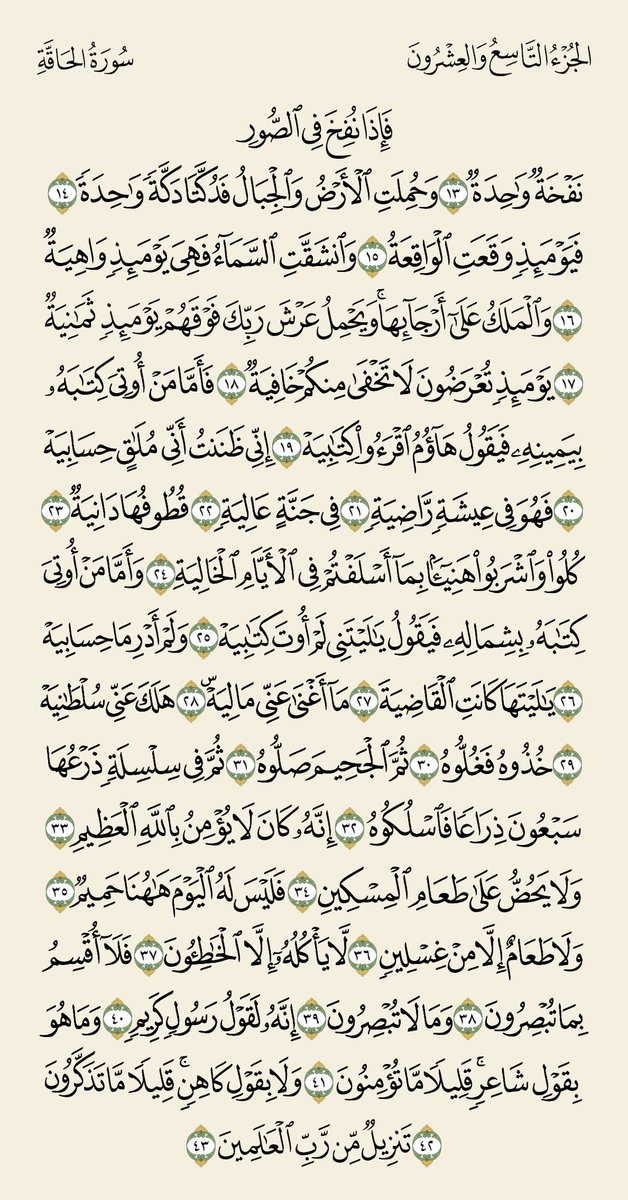 الجُزْءُ التَّاسِعُ وَالعِشْرُونَ
سُورَةُ الحَاقَّةِ
فَإِذَا نُفِخَ فِي ٱلصُّورِ
نَفۡخَةٞ وَٰحِدَةٞ ١٣ وَحُمِلَتِ ٱلۡأَرۡضُ وَٱلۡجِبَالُ فَدُكَّتَا دَكَّةٗ وَٰحِدَةٗ ١٤
فَيَوۡمَئِذٖ وَقَعَتِ ٱلۡوَاقِعَةُ ١٥ وَٱنشَقَّتِ ٱلسَّمَآءُ فَهِيَ يَوۡمَئِذٖ وَاهِيَةٞ
١٦ وَٱلۡمَلَكُ عَلَىٰٓ أَرۡجَآئِهَاۚ وَيَحۡمِلُ عَرۡشَ رَبِّكَ فَوۡقَهُمۡ يَوۡمَئِذٖ ثَمَٰنِيَةٞ
١٧ يَوۡمَئِذٖ تُعۡرَضُونَ لَا تَخۡفَىٰ مِنكُمۡ خَافِيَةٞ ١٨ فَأَمَّا مَنۡ أُوتِيَ كِتَٰبَهُۥ
بِيَمِينِهِۦ فَيَقُولُ هَآؤُمُ ٱقۡرَءُواْ كِتَٰبِيَهۡ ١٩ إِنِّي ظَنَنتُ أَنِّي مُلَٰقٍ حِسَابِيَهۡ
٢٠ فَهُوَ فِي عِيشَةٖ رَّاضِيَةٖ ٢١ فِي جَنَّةٍ عَالِيَةٖ ٢٢ قُطُوفُهَا دَانِيَةٞ ٢٣
كُلُواْ وَٱشۡرَبُواْ هَنِيٓـَٔۢا بِمَآ أَسۡلَفۡتُمۡ فِي ٱلۡأَيَّامِ ٱلۡخَالِيَةِ ٢٤ وَأَمَّا مَنۡ أُوتِيَ
كِتَٰبَهُۥ بِشِمَالِهِۦ فَيَقُولُ يَٰلَيۡتَنِي لَمۡ أُوتَ كِتَٰبِيَهۡ ٢٥ وَلَمۡ أَدۡرِ مَا حِسَابِيَهۡ
٢٦ يَٰلَيۡتَهَا كَانَتِ ٱلۡقَاضِيَةَ ٢٧ مَآ أَغۡنَىٰ عَنِّي مَالِيَهۡۜ ٢٨ هَلَكَ عَنِّي سُلۡطَٰنِيَهۡ
٢٩ خُذُوهُ فَغُلُّوهُ ٣٠ ثُمَّ ٱلۡجَحِيمَ صَلُّوهُ ٣١ ثُمَّ فِي سِلۡسِلَةٖ ذَرۡعُهَا
سَبۡعُونَ ذِرَاعٗا فَٱسۡلُكُوهُ ٣٢ إِنَّهُۥ كَانَ لَا يُؤۡمِنُ بِٱللَّهِ ٱلۡعَظِيمِ ٣٣
وَلَا يَحُضُّ عَلَىٰ طَعَامِ ٱلۡمِسۡكِينِ ٣٤ فَلَيۡسَ لَهُ ٱلۡيَوۡمَ هَٰهُنَا حَمِيمٞ ٣٥
وَلَا طَعَامٌ إِلَّا مِنۡ غِسۡلِينٖ ٣٦ لَّا يَأۡكُلُهُۥٓ إِلَّا ٱلۡخَٰطِـُٔونَ ٣٧ فَلَآ أُقۡسِمُ
بِمَا تُبۡصِرُونَ ٣٨ وَمَا لَا تُبۡصِرُونَ ٣٩ إِنَّهُۥ لَقَوۡلُ رَسُولٖ كَرِيمٖ ٤٠ وَمَا هُوَ
بِقَوۡلِ شَاعِرٖۚ قَلِيلٗا مَّا تُؤۡمِنُونَ ٤١ وَلَا بِقَوۡلِ كَاهِنٖۚ قَلِيلٗا مَّا تَذَكَّرُونَ
٤٢ تَنزِيلٞ مِّن رَّبِّ ٱلۡعَٰلَمِينَ ٤٣